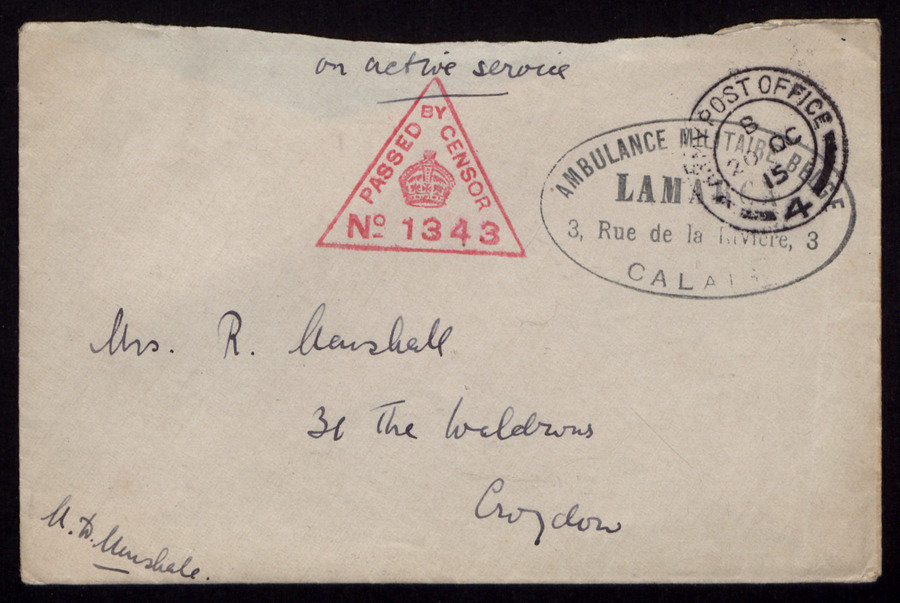 on active service
PASSED BY CENSOR
Nº 1343
ARMY POST OFFICE
8 OC
15
4
AMBULANCE MILITAIRE BELGE
LAMARCK
3, Rue de la Rivière, 3
CALAIS
Mrs. R. Marshall
31 The Waldrons
Croydon
Marshall.